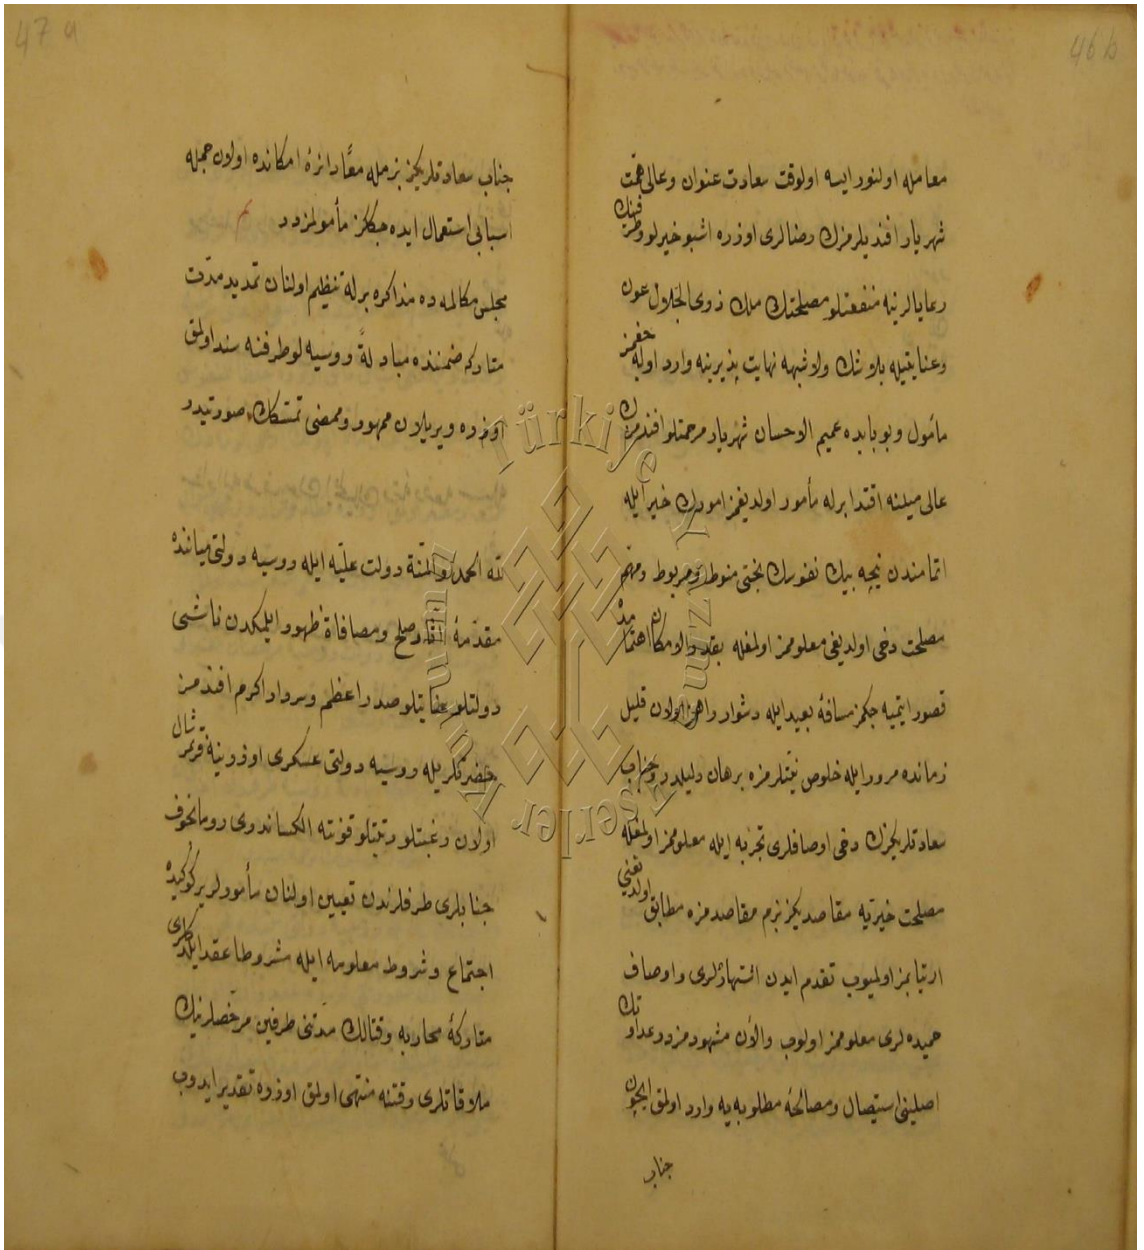 46 b
معامله اولنور ایسه اولوقت سعادت عنوان وعالی همّت
شهریار افندیلرمزك رضالری اوزره اشبو خیرلو وطرفینك
رعایالرینه منفعتلو مصلحتك ملك ذوی الجلال عون
وعنایتیله بلاشك ولاشبهه نهایت پذیرینه وارد اوله جغمز
مأمول وبو بابده عمیم الاحسان شهریار مرحمتلو افندیمزك
عالی میلنه اقتدا برله مأمور اولدیغمز امورك خیر ایله
اتمامندن نیچه بیك نفوسك بختی منوط ومربوط ومهتم
مصلحت دخی اولدیغی معلوممز اولمغله بقدر الامکان اهتمامده
قصور ایتمیه جکمز مسافهٔ بعید ایله دشوار راهمز اولان قلیل
زمانده مرور ایله خلوص نیتلرمزه برهان دلیلدر وجناب
سعادتلریكزك دخی اوصافلری تجربه ایله معلوممز اولمغله
مصلحت خیریه مقاصدیكز بزم مقاصدمزه مطابق اولدیغنی
ارتیابمز اولمیوب تقدم ایدن اشتهارلری واوصاف
حمیده لری معلوممز اولوب والآن مشهودمزدر وعداوتك
اصلینی استیصال ومصالحهٔ مطلوبه یه وارد اولمق ایچون
جناب
47 a
جناب سعادتلریكز بزمله معًا دائرهٔ امكانده اولان جمله
اسبابی استعمال ایده جكلكز مأمولمزدر
مجلس مكالمه ده مذاكره برله تنظیم اولنان تمدید مدّت
متاركه ضمننده مبادلةً روسیه لو طرفنه سند اولمق
اوزره ویریلان ممهور وممضی تمسّكك صورتیدر
لله الحمد والمنّة دولت علیّه ایله روسیه دولتی میاننده
مقدّمهٔ صلح ومصافاة ظهور ایلمكدن ناشی
دولتلو عنایتلو صدر اعظم وسردار اكرم افندمز
حضرتلریله روسیه دولتی عسكری اوزرینه فرتمرشال
اولان رغبتلو رتبتلو قونته الكساندروی رومانخوف
جنابلری طرفلرندن تعیین اولنان مأمورلر یركوكیده
اجتماع وشروط معلومه ایله مشروطا عقد ایلدكلری
متاركهٔ محاربه وقتالك مدّتنی طرفین مرخّصلرینك
ملاقاتلری وقتنه منتهی اولمق اوزره تقدیر ایدوب
Türkiye Yazma Eserler Kurumu